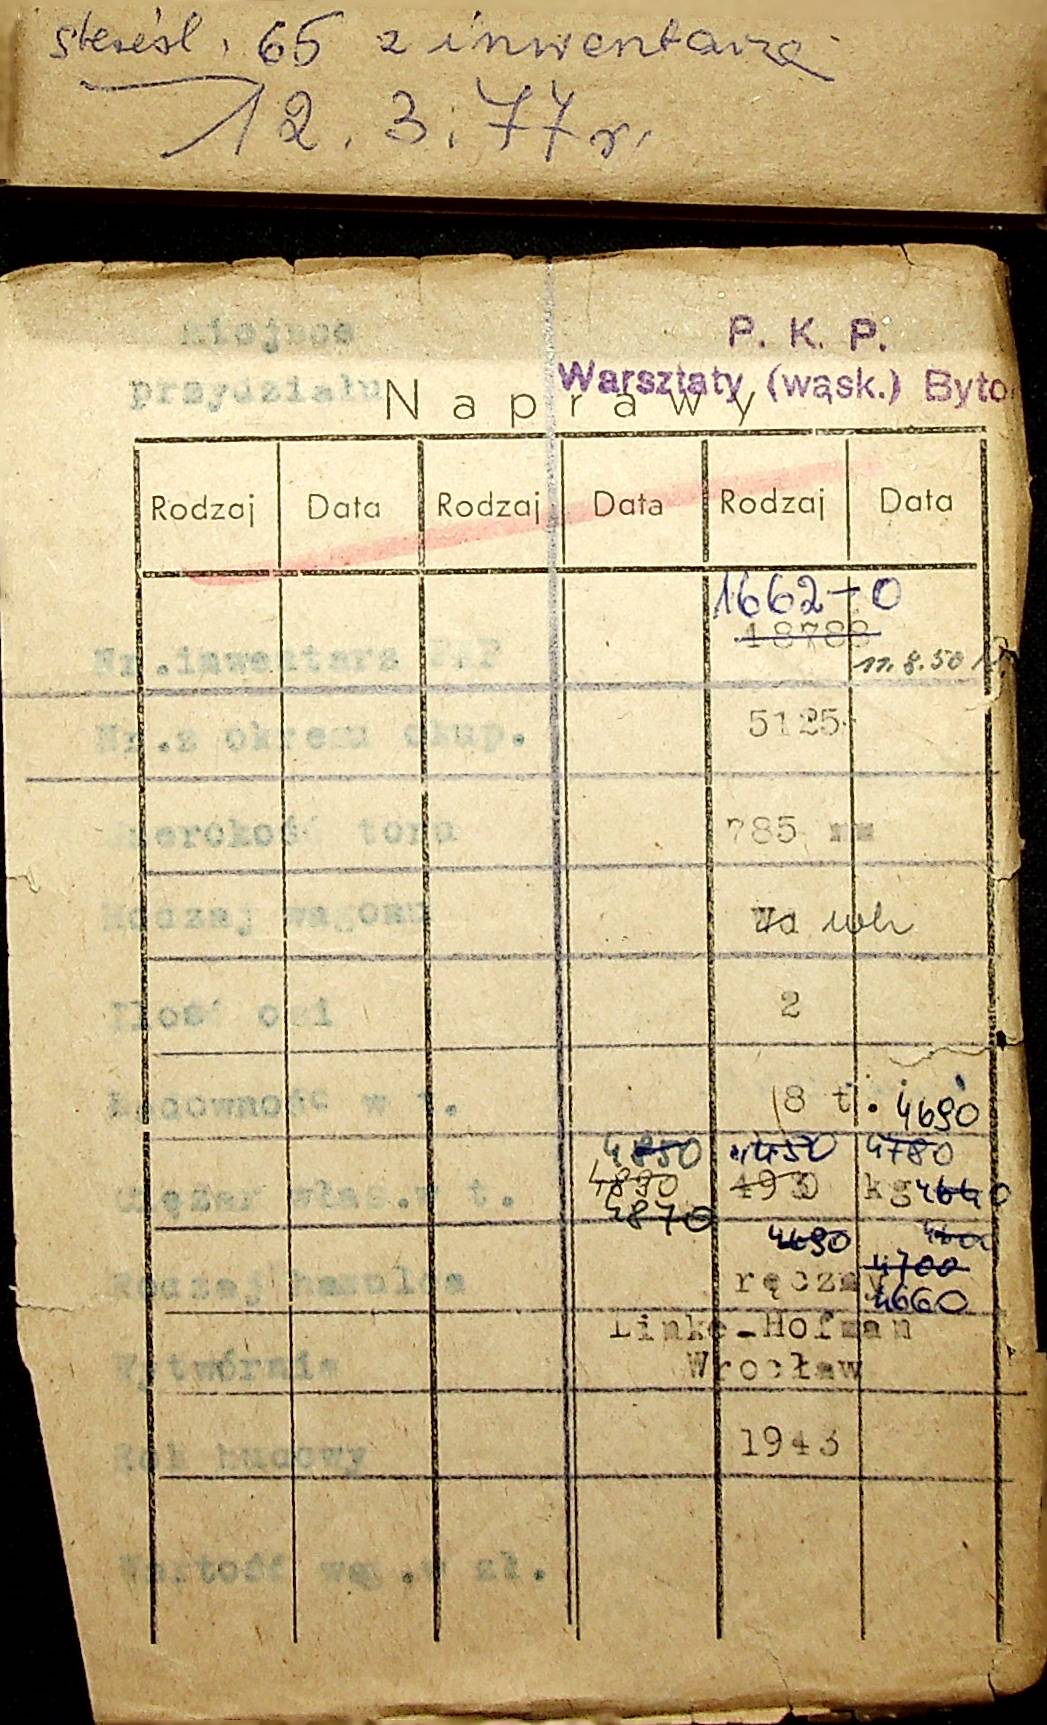 skreśl. 65 z inwentarza
12.3.77 r.
Miejsce
przydziału
P. K. P.
Warsztaty (wąsk.) Byto
Naprawy
Rodzaj Data Rodzaj Data Rodzaj Data
1662-0
Nr.inwentarz PKP 18788 11.8.50
Nr.z okresu okup. 5125
Szerokość toru 785 mm
Rodzaj wagonu Wd
Ilość osi 2
Ładowność w t. 8 t. 4690
4850 4450 4780
Ciężar włas.w t. 4890 4930 kg 4640
4870
4690
4700
Rodzaj hamulca ręczny
4660
Linke-Hofman
Wytwórnia Wrocław
Rok budowy 1943
Wartość wag.w zł.